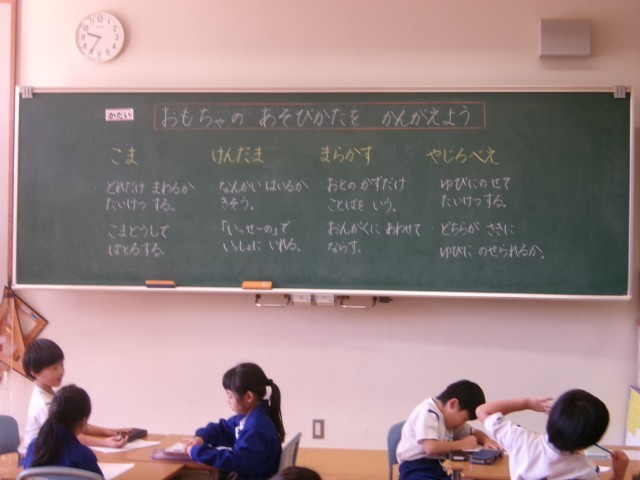 かだい
おもちゃの あそびかたを かんがえよう
こま
どれだけ まわるか
たいけつ する。
こまどうしで
ばとる する。
けんだま
なんかい はいるか
きそう。
「いっせーの」で
いっしょに いれる。
まらかす
おとの かずだけ
ことばを いう。
おんがくに あわせて
ならす。
やじろべえ
ゆびにのせて
たいけつ する。
どちらが さきに
ゆびに のせられるか。